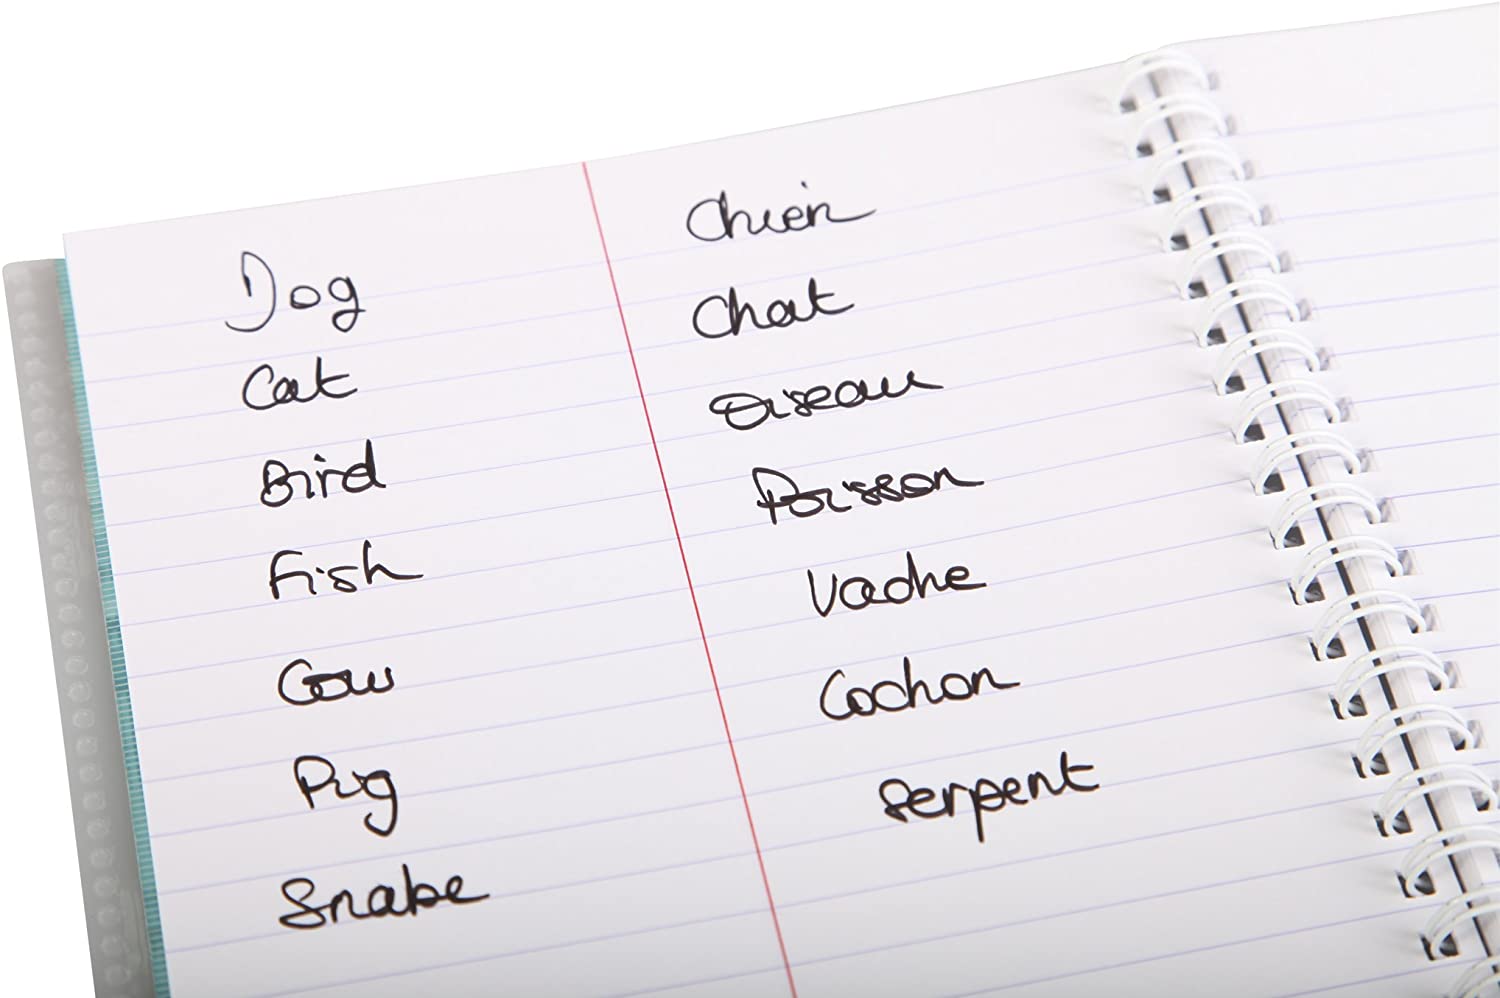 Dog Chien
Cat Chat
Bird Oiseau
Fish Poisson
Cow Vache
Pig Cochon
Snake Serpent